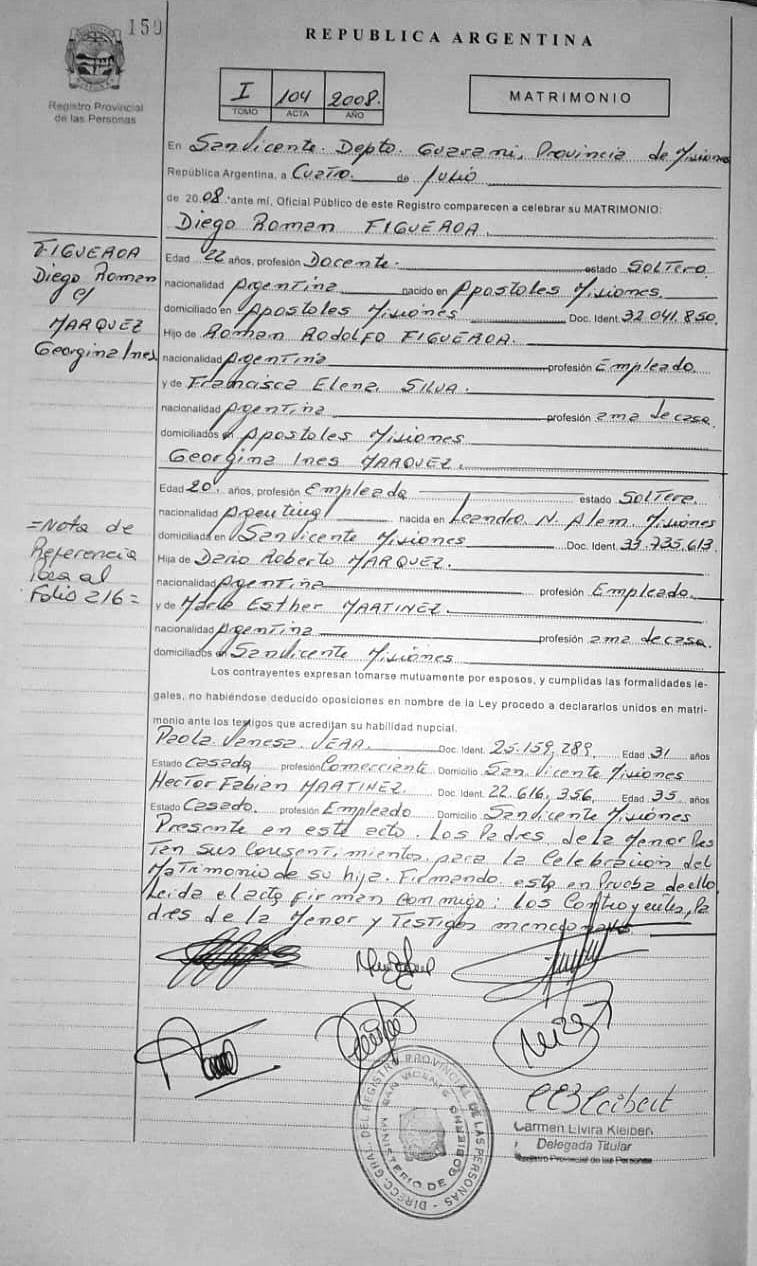 150
REPUBLICA ARGENTINA
Registro Provincial
de las Personas
I 104 2008.
TOMO ACTA AÑO
MATRIMONIO
En San Vicente. Depto. Guarani, Provincia de Misiones
República Argentina, a Cuatro. de Julio
de 2008. ante mí, Oficial Público de este Registro comparecen a celebrar su MATRIMONIO:
Diego Roman FIGUEROA.
Edad 22 años, profesión Docente. estado SOLTERO
nacionalidad Argentina nacido en Apostoles Misiones.
domiciliado en Apostoles Misiones Doc. Ident. 32.041.850.
Hijo de Roman RODOLFO FIGUEROA.
nacionalidad Argentina profesión Empleado.
y de Francisca Elena SILVA.
nacionalidad Argentina profesión ama de casa.
domiciliados en Apostoles Misiones
Georgina Ines MARQUEZ.
Edad 20. años, profesión Empleada estado Soltera.
nacionalidad Argentina nacida en Leandro. N. Alem. Misiones
domiciliada en San Vicente Misiones Doc. Ident. 33.735.613.
Hija de Dario Roberto MARQUEZ.
nacionalidad Argentina profesión Empleado.
y de Esther MARTINEZ.
nacionalidad Argentina profesión ama de casa.
domiciliados en San Vicente Misiones
Los contrayentes expresan tomarse mutuamente por esposos, y cumplidas las formalidades le-
gales, no habiéndose deducido oposiciones en nombre de la Ley procedo a declararlos unidos en matri-
monio ante los testigos que acreditan su habilidad nupcial.
Paola Vanesa VERA. Doc. Ident. 25.159.289. Edad 31 años
Estado Casada profesión Comerciante Domicilio San Vicente Misiones
Hector Fabian MARTINEZ. Doc. Ident. 22.616.356. Edad 35 años
Estado Casado. profesión Empleado Domicilio San Vicente Misiones
Presente en este acto. Los Padres de la Menor Pres
tan sus Consentimientos para la Celebracion del
Matrimonio de su hija. Firmando esta en Prueba de ello
Leida el acta firman conmigo: los Contrayentes, Pa
dres de la Menor y Testigos mencionados.
FIGUEROA
Diego Roman
c/
MARQUEZ
Georgina Ines
=Nota de
Referencia
al
Folio 216=
DIRECC. GRAL. DEL REGISTRO PROVINCIAL DE LAS PERSONAS
SAN VICENTE
MINISTERIO DE GOBIERNO
Carmen Elvira Kleiber
Delegada Titular
Registro Provincial de las Personas